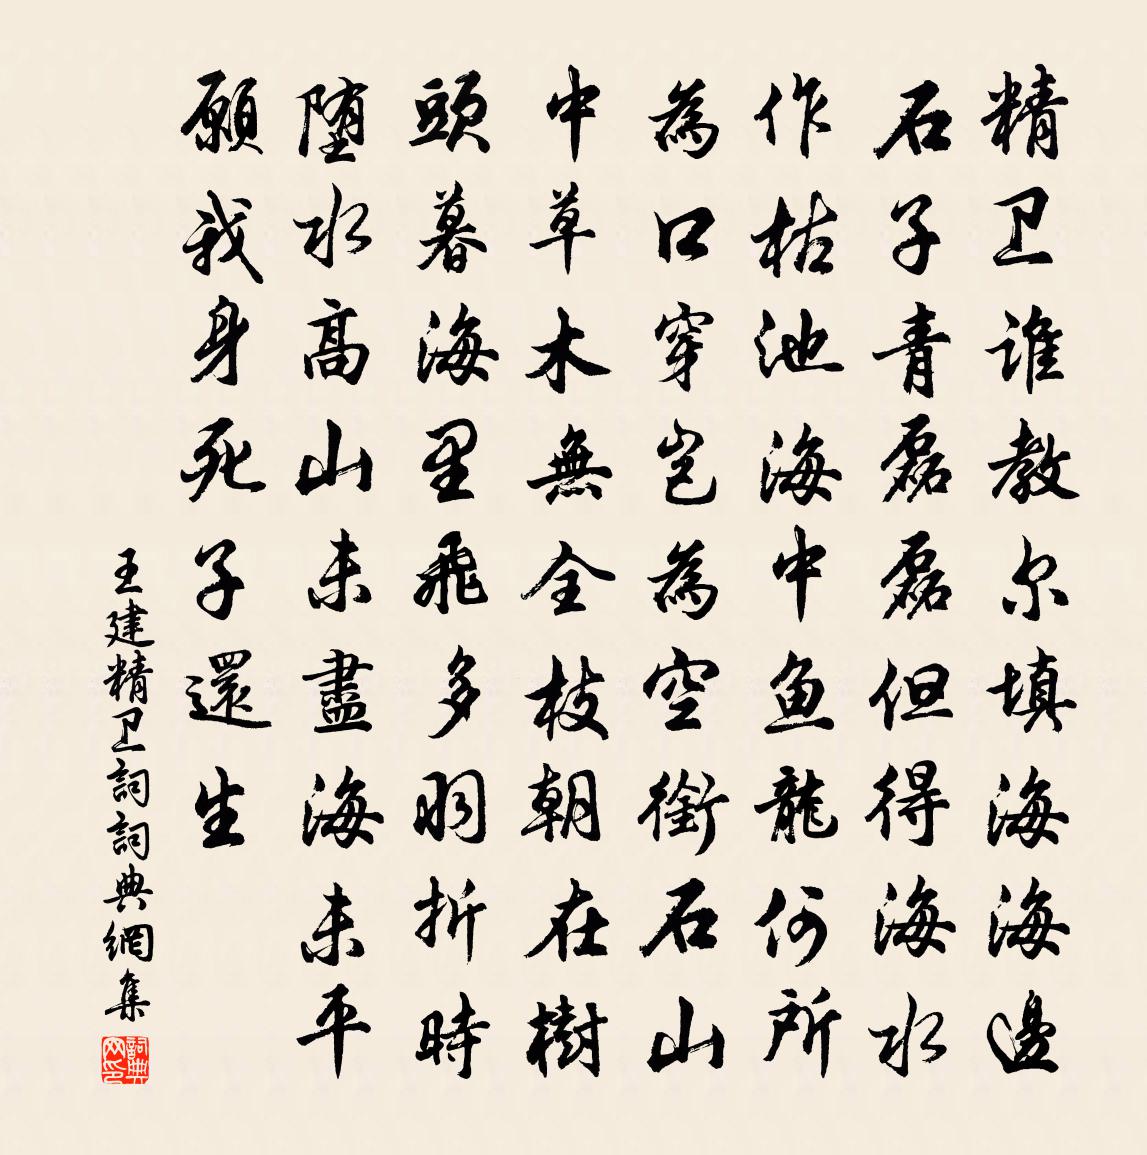 精卫谁教尔填海海邊
石子青磊磊但得海水
作枯池海中鱼龍何所
為口穿岂為空銜石山
中草木無全枝朝在樹
頭暮海里飛多羽折時
堕水高山未盡海未平
願我身死子還生
王建精卫詞詞典網集
詞典网印